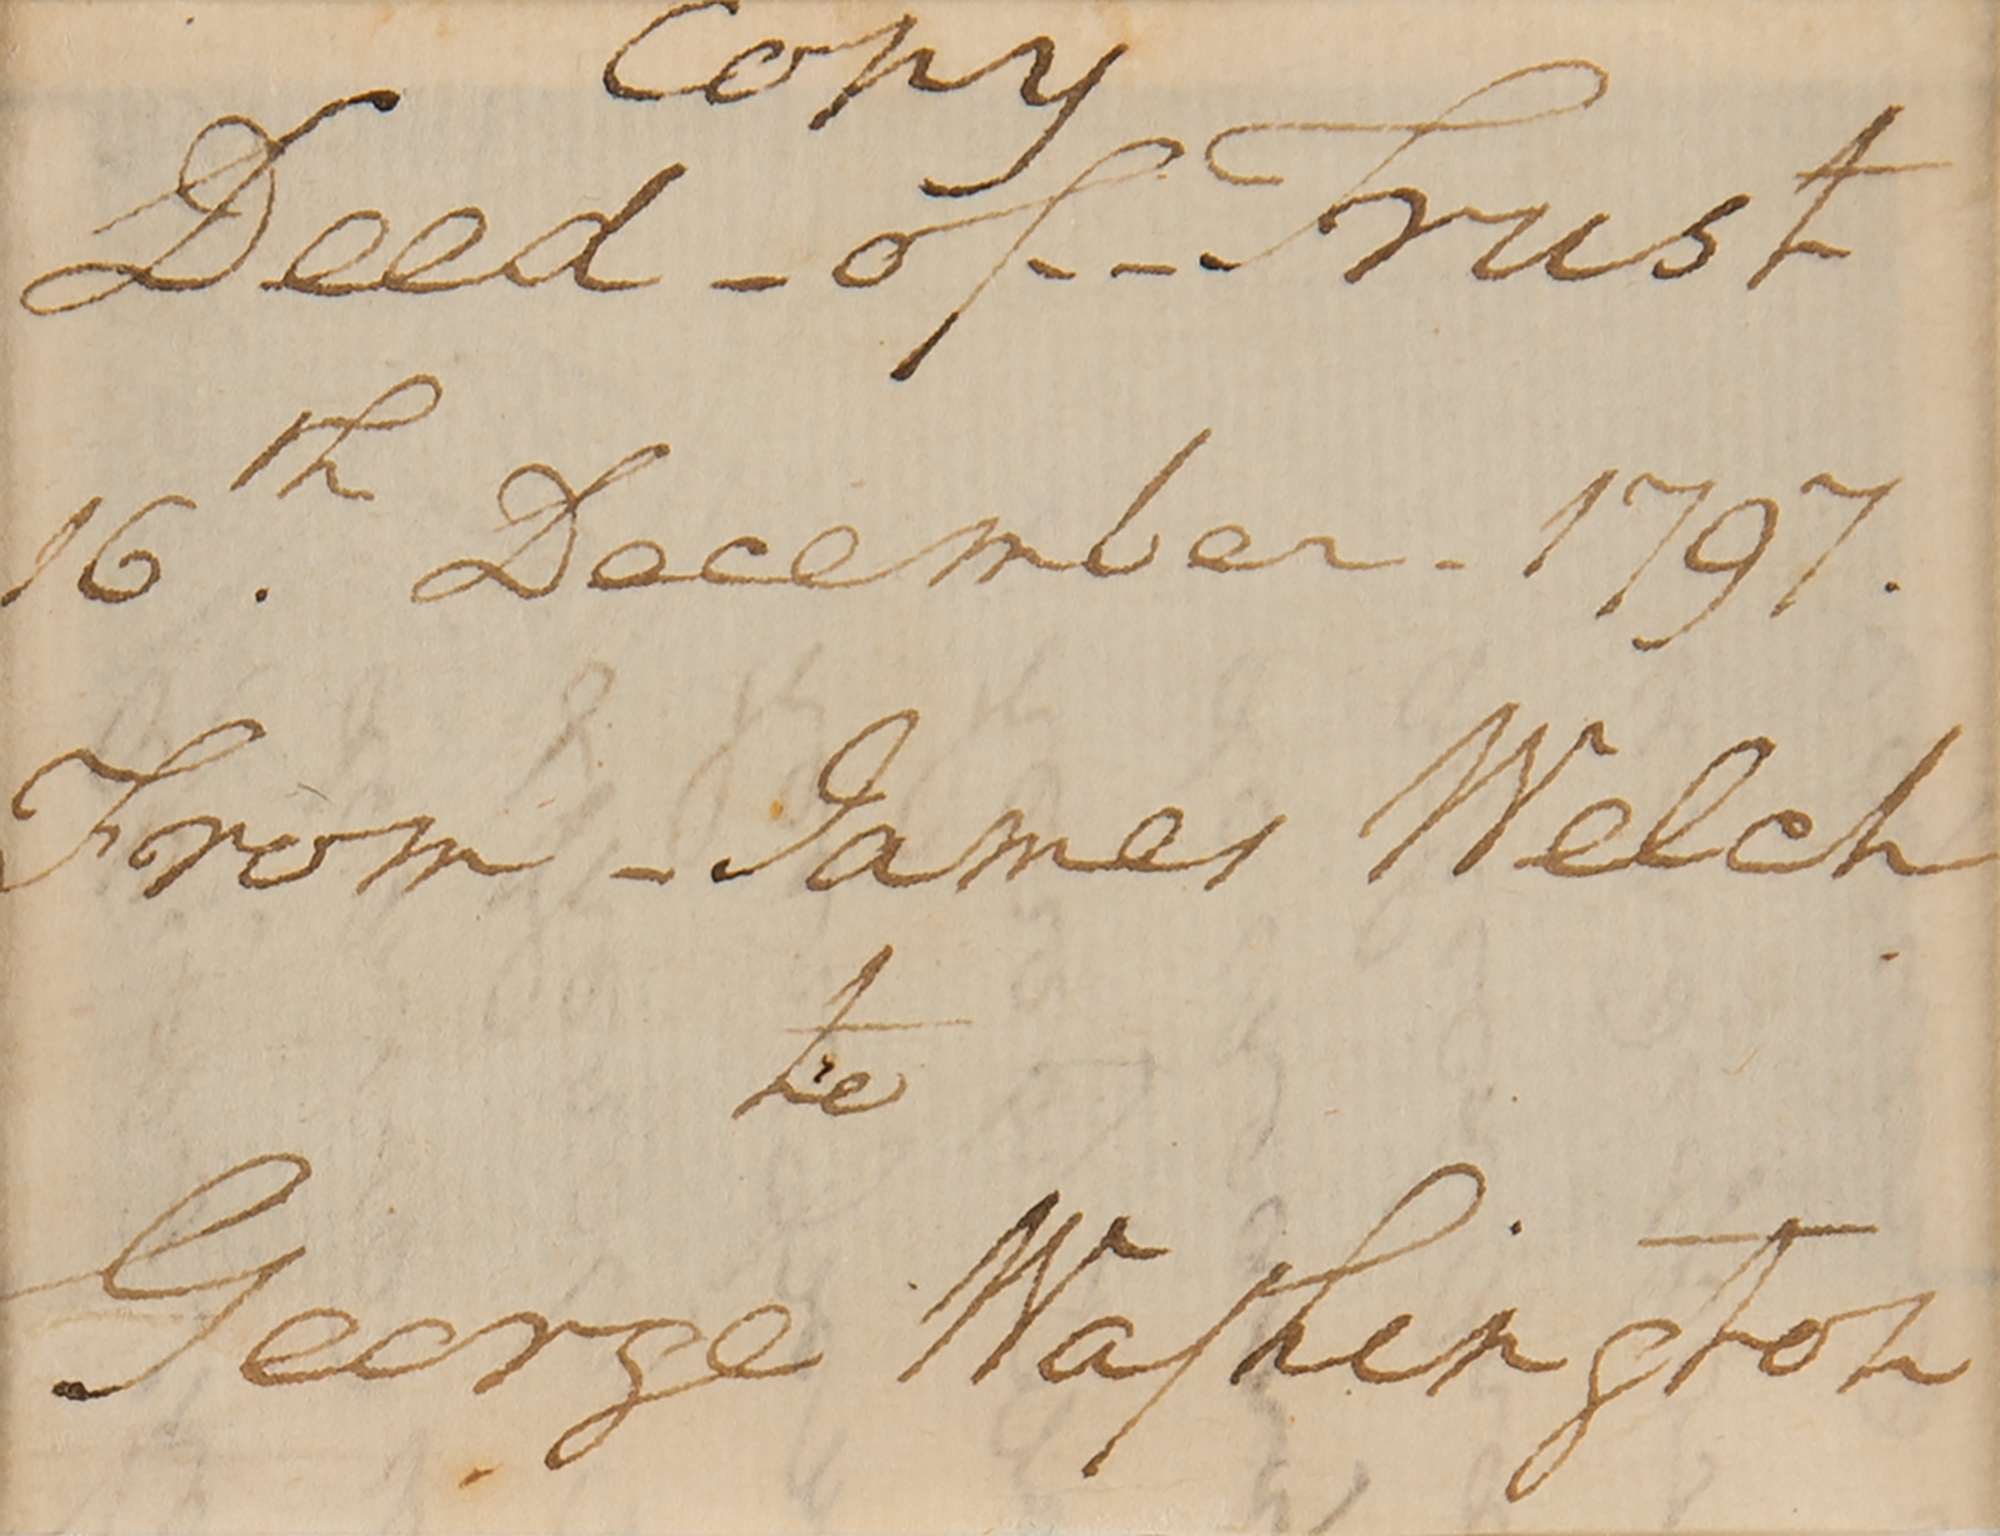 Copy
Deed - of - - Trust
16th. December - 1797.
From - James Welch
to
George Waſhington